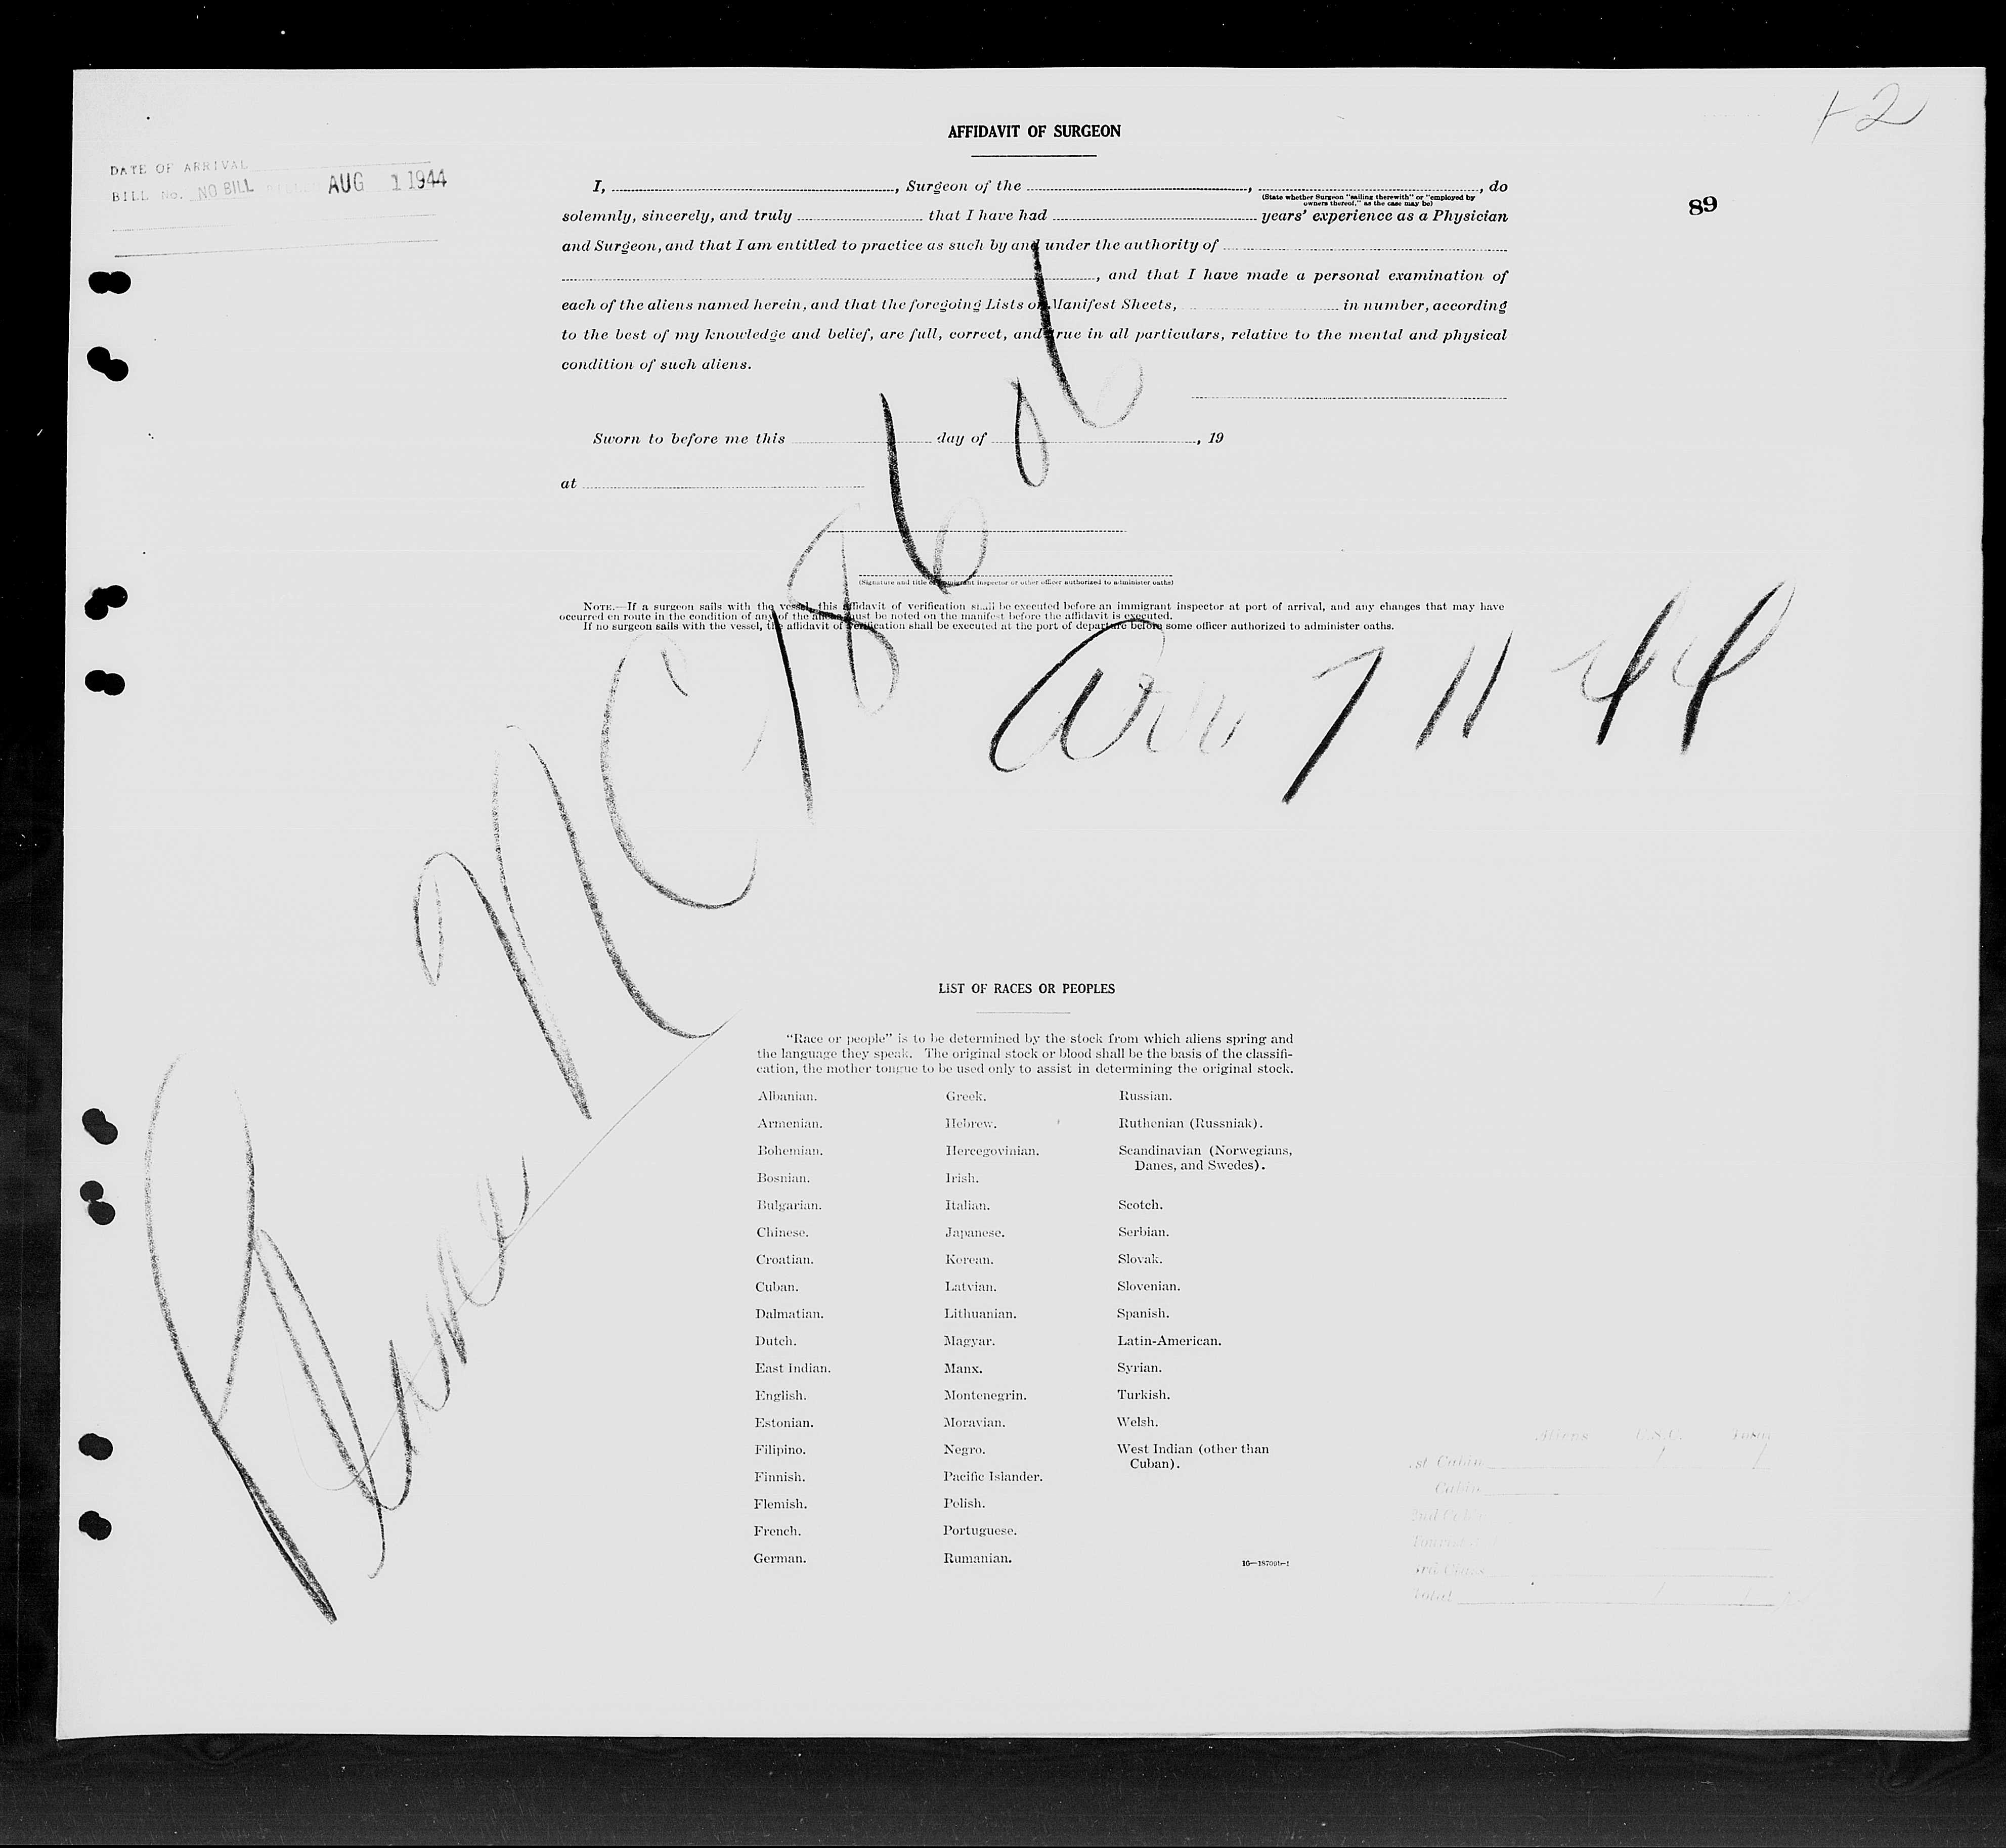 +2
AFFIDAVIT OF SURGEON
DATE OF ARRIVAL
BILL No. NO BILL AUG 1 1944
89
I, , Surgeon of the , , do
(State whether Surgeon "sailing therewith" or "employed by
owners thereof," as the case may be)
solemnly, sincerely, and truly that I have had years' experience as a Physician
and Surgeon, and that I am entitled to practice as such by and under the authority of
, and that I have made a personal examination of
each of the aliens named herein, and that the foregoing Lists or Manifest Sheets, in number, according
to the best of my knowledge and belief, are full, correct, and true in all particulars, relative to the mental and physical
condition of such aliens.
Sworn to before me this day of , 19
at
(Signature and title of immigrant inspector or other officer authorized to administer oaths)
NOTE.—If a surgeon sails with the vessel, this affidavit of verification shall be executed before an immigrant inspector at port of arrival, and any changes that may have
occurred en route in the condition of any of the aliens must be noted on the manifest before the affidavit is executed.
If no surgeon sails with the vessel, the affidavit of verification shall be executed at the port of departure before some officer authorized to administer oaths.
Plane NC 18606
Arr 7 11 44
LIST OF RACES OR PEOPLES
"Race or people" is to be determined by the stock from which aliens spring and
the language they speak. The original stock or blood shall be the basis of the classifi-
cation, the mother tongue to be used only to assist in determining the original stock.
Albanian.
Armenian.
Bohemian.
Bosnian.
Bulgarian.
Chinese.
Croatian.
Cuban.
Dalmatian.
Dutch.
East Indian.
English.
Estonian.
Filipino.
Finnish.
Flemish.
French.
German.
Greek.
Hebrew.
Hercegovinian.
Irish.
Italian.
Japanese.
Korean.
Latvian.
Lithuanian.
Magyar.
Manx.
Montenegrin.
Moravian.
Negro.
Pacific Islander.
Polish.
Portuguese.
Rumanian.
Russian.
Ruthenian (Russniak).
Scandinavian (Norwegians,
Danes, and Swedes).
Scotch.
Serbian.
Slovak.
Slovenian.
Spanish.
Latin-American.
Syrian.
Turkish.
Welsh.
West Indian (other than
Cuban).
Aliens U.S.C.
Cabin
Cabin
3rd Class
Total